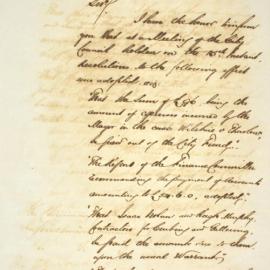 Sir,
I have the honor to inform
you that at a Meeting of the City
Council holden on the 15th Instant
Resolutions to the following effect
was adopted, viz.
That the Sum of £96 being the
amount of expenses incurred by the
Mayor in the case Wilshire v
be paid out of the City Funds.
The Report of the Finance Committee
recommending the payment of Accounts
amounting to adopted,
That Isaac Nolan and Hugh Murphy,
Contractors for Curbing and Guttering
be paid the amounts due to them
upon the usual Warrants.